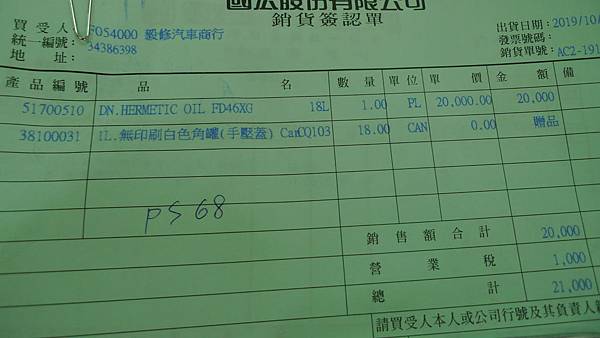 股份有限公司
銷貨簽認單
買受人 F054000 毅修汽車商行
統一編號: 34386398
地址:
出貨日期: 2019/10/
發票號碼:
銷貨單號: AC2-191
產品編號 品名 數量 單位 單價 金額 備
51700510 DN.HERMETIC OIL FD46XG 18L 1.00 PL 20,000.00 20,000
38100031 1L.無印刷白色角罐(手壓蓋) CanCQ103 18.00 CAN 0.00 贈品
PS 68
銷售額合計 20,000
營業稅 1,000
總計 21,000
請買受人本人或公司行號及其負責人